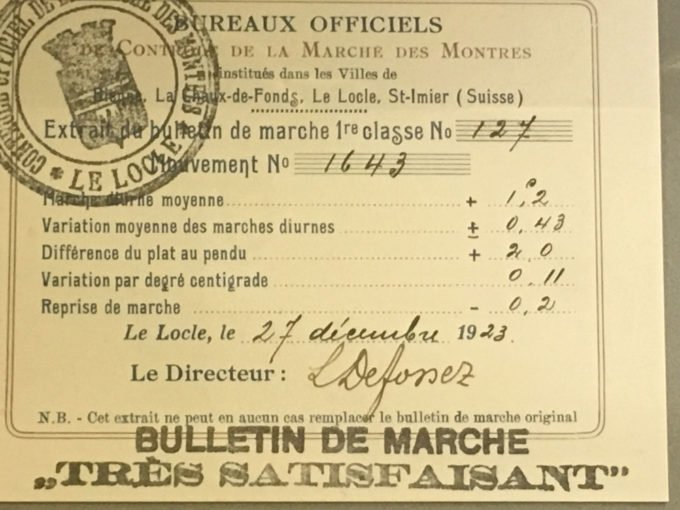 BUREAUX OFFICIELS
DE CONTRÔLE DE LA MARCHE DES MONTRES
institués dans les Villes de
Bienne, La Chaux-de-Fonds, Le Locle, St-Imier (Suisse)
Extrait du bulletin de marche 1re classe No 127
Mouvement No 1643
Marche diurne moyenne + 1,2
Variation moyenne des marches diurnes ± 0,43
Différence du plat au pendu + 2,0
Variation par degré centigrade 0,11
Reprise de marche - 0,2
Le Locle, le 27 décembre 1923.
Le Directeur: L Defossez
N.B. - Cet extrait ne peut en aucun cas remplacer le bulletin de marche original
BULLETIN DE MARCHE
„TRÈS SATISFAISANT”
* LE LOCLE *